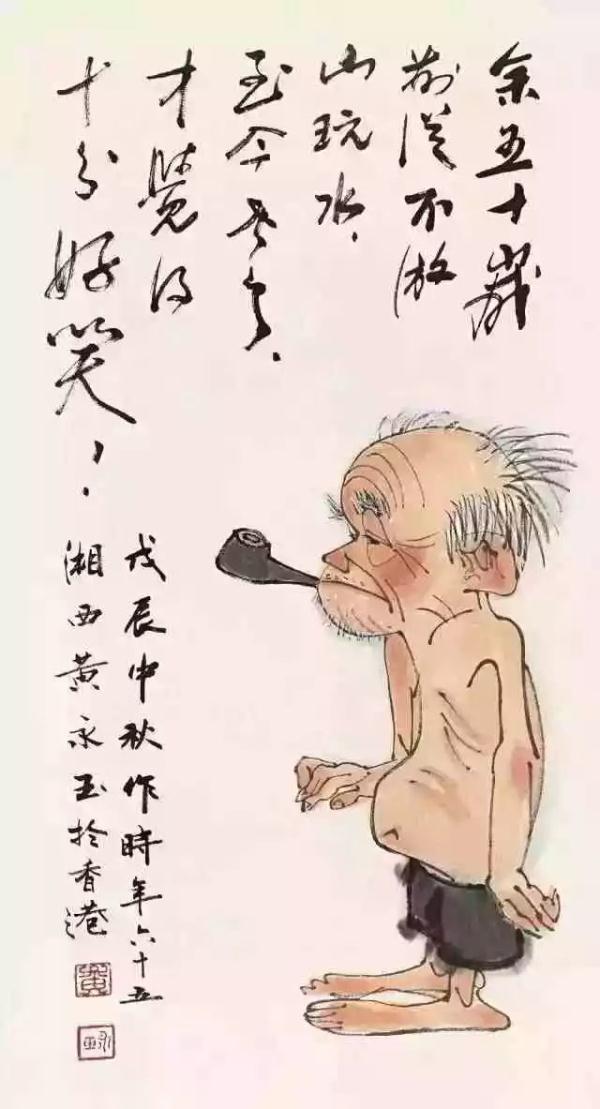 余五十歲
前從不游
山玩水、
至今老了、
才覺得
十分好笑！
戊辰中秋作時年六十五
湘西黄永玉於香港
黄
永玉